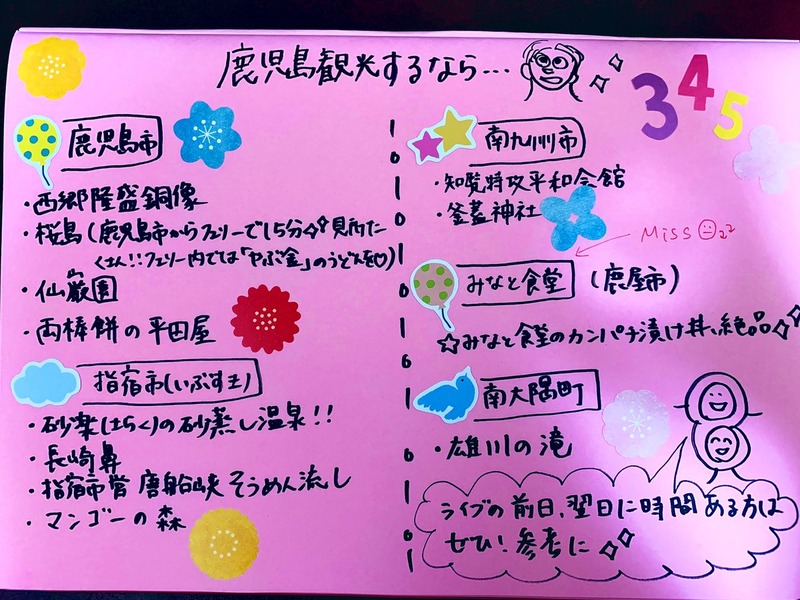 鹿児島観光するなら...
345
鹿児島市
・西郷隆盛銅像
・桜島(鹿児島市からフェリーで15分 見所た
くさん!!フェリー内では「やぶ金」のうどんを♡)
・仙巌園
がん
・両棒餅の平田屋
指宿市(いぶすき)
・砂楽(さらく)の砂蒸し温泉!!
・長崎鼻
・指宿市営 唐船峡そうめん流し
・マンゴーの森
南九州市
・知覧特攻平和会館
・釜蓋神社
Miss
みなと食堂(鹿屋市)
☆みなと食堂のカンパチ漬け丼、絶品
南大隅町
・雄川の滝
ライブの前日、翌日に時間ある方は
ぜひ!参考に